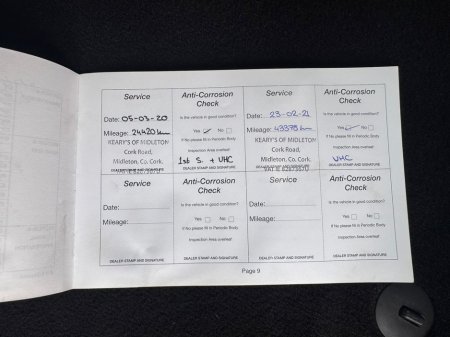 Service
Date: 05-03-20
Mileage: 24420 km
KEARY'S OF MIDLETON
Cork Road,
Midleton, Co. Cork.
Anti-Corrosion
Check
Is the vehicle in good condition?
Yes ✓ No
If No please fill in Periodic Body
Inspection Area overleaf
1st S. + VHC
DEALER STAMP AND SIGNATURE
Service
Date: 23-02-21
Mileage: 43375 km
KEARY'S OF MIDLETON
Cork Road,
Midleton, Co. Cork.
Anti-Corrosion
Check
Is the vehicle in good condition?
Yes ✓ No
If No please fill in Periodic Body
Inspection Area overleaf
VHC
DEALER STAMP AND SIGNATURE
Service
Date:
Mileage:
DEALER STAMP AND SIGNATURE
Anti-Corrosion
Check
Is the vehicle in good condition?
Yes No
If No please fill in Periodic Body
Inspection Area overleaf
DEALER STAMP AND SIGNATURE
Service
Date:
Mileage:
DEALER STAMP AND SIGNATURE
Anti-Corrosion
Check
Is the vehicle in good condition?
Yes No
If No please fill in Periodic Body
Inspection Area overleaf
DEALER STAMP AND SIGNATURE
Page 9